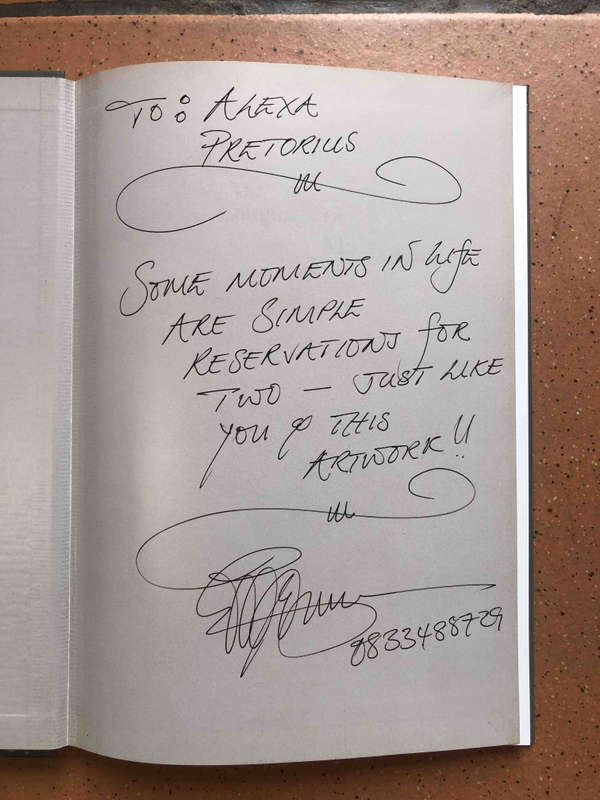 TO: ALEXA
PRETORIUS
SOME MOMENTS IN LIfE
ARE SIMPLE
RESERVATIONS fOR
TWO — JUST LIKE
YOU & THIS
ARTWORK!!
0833488729